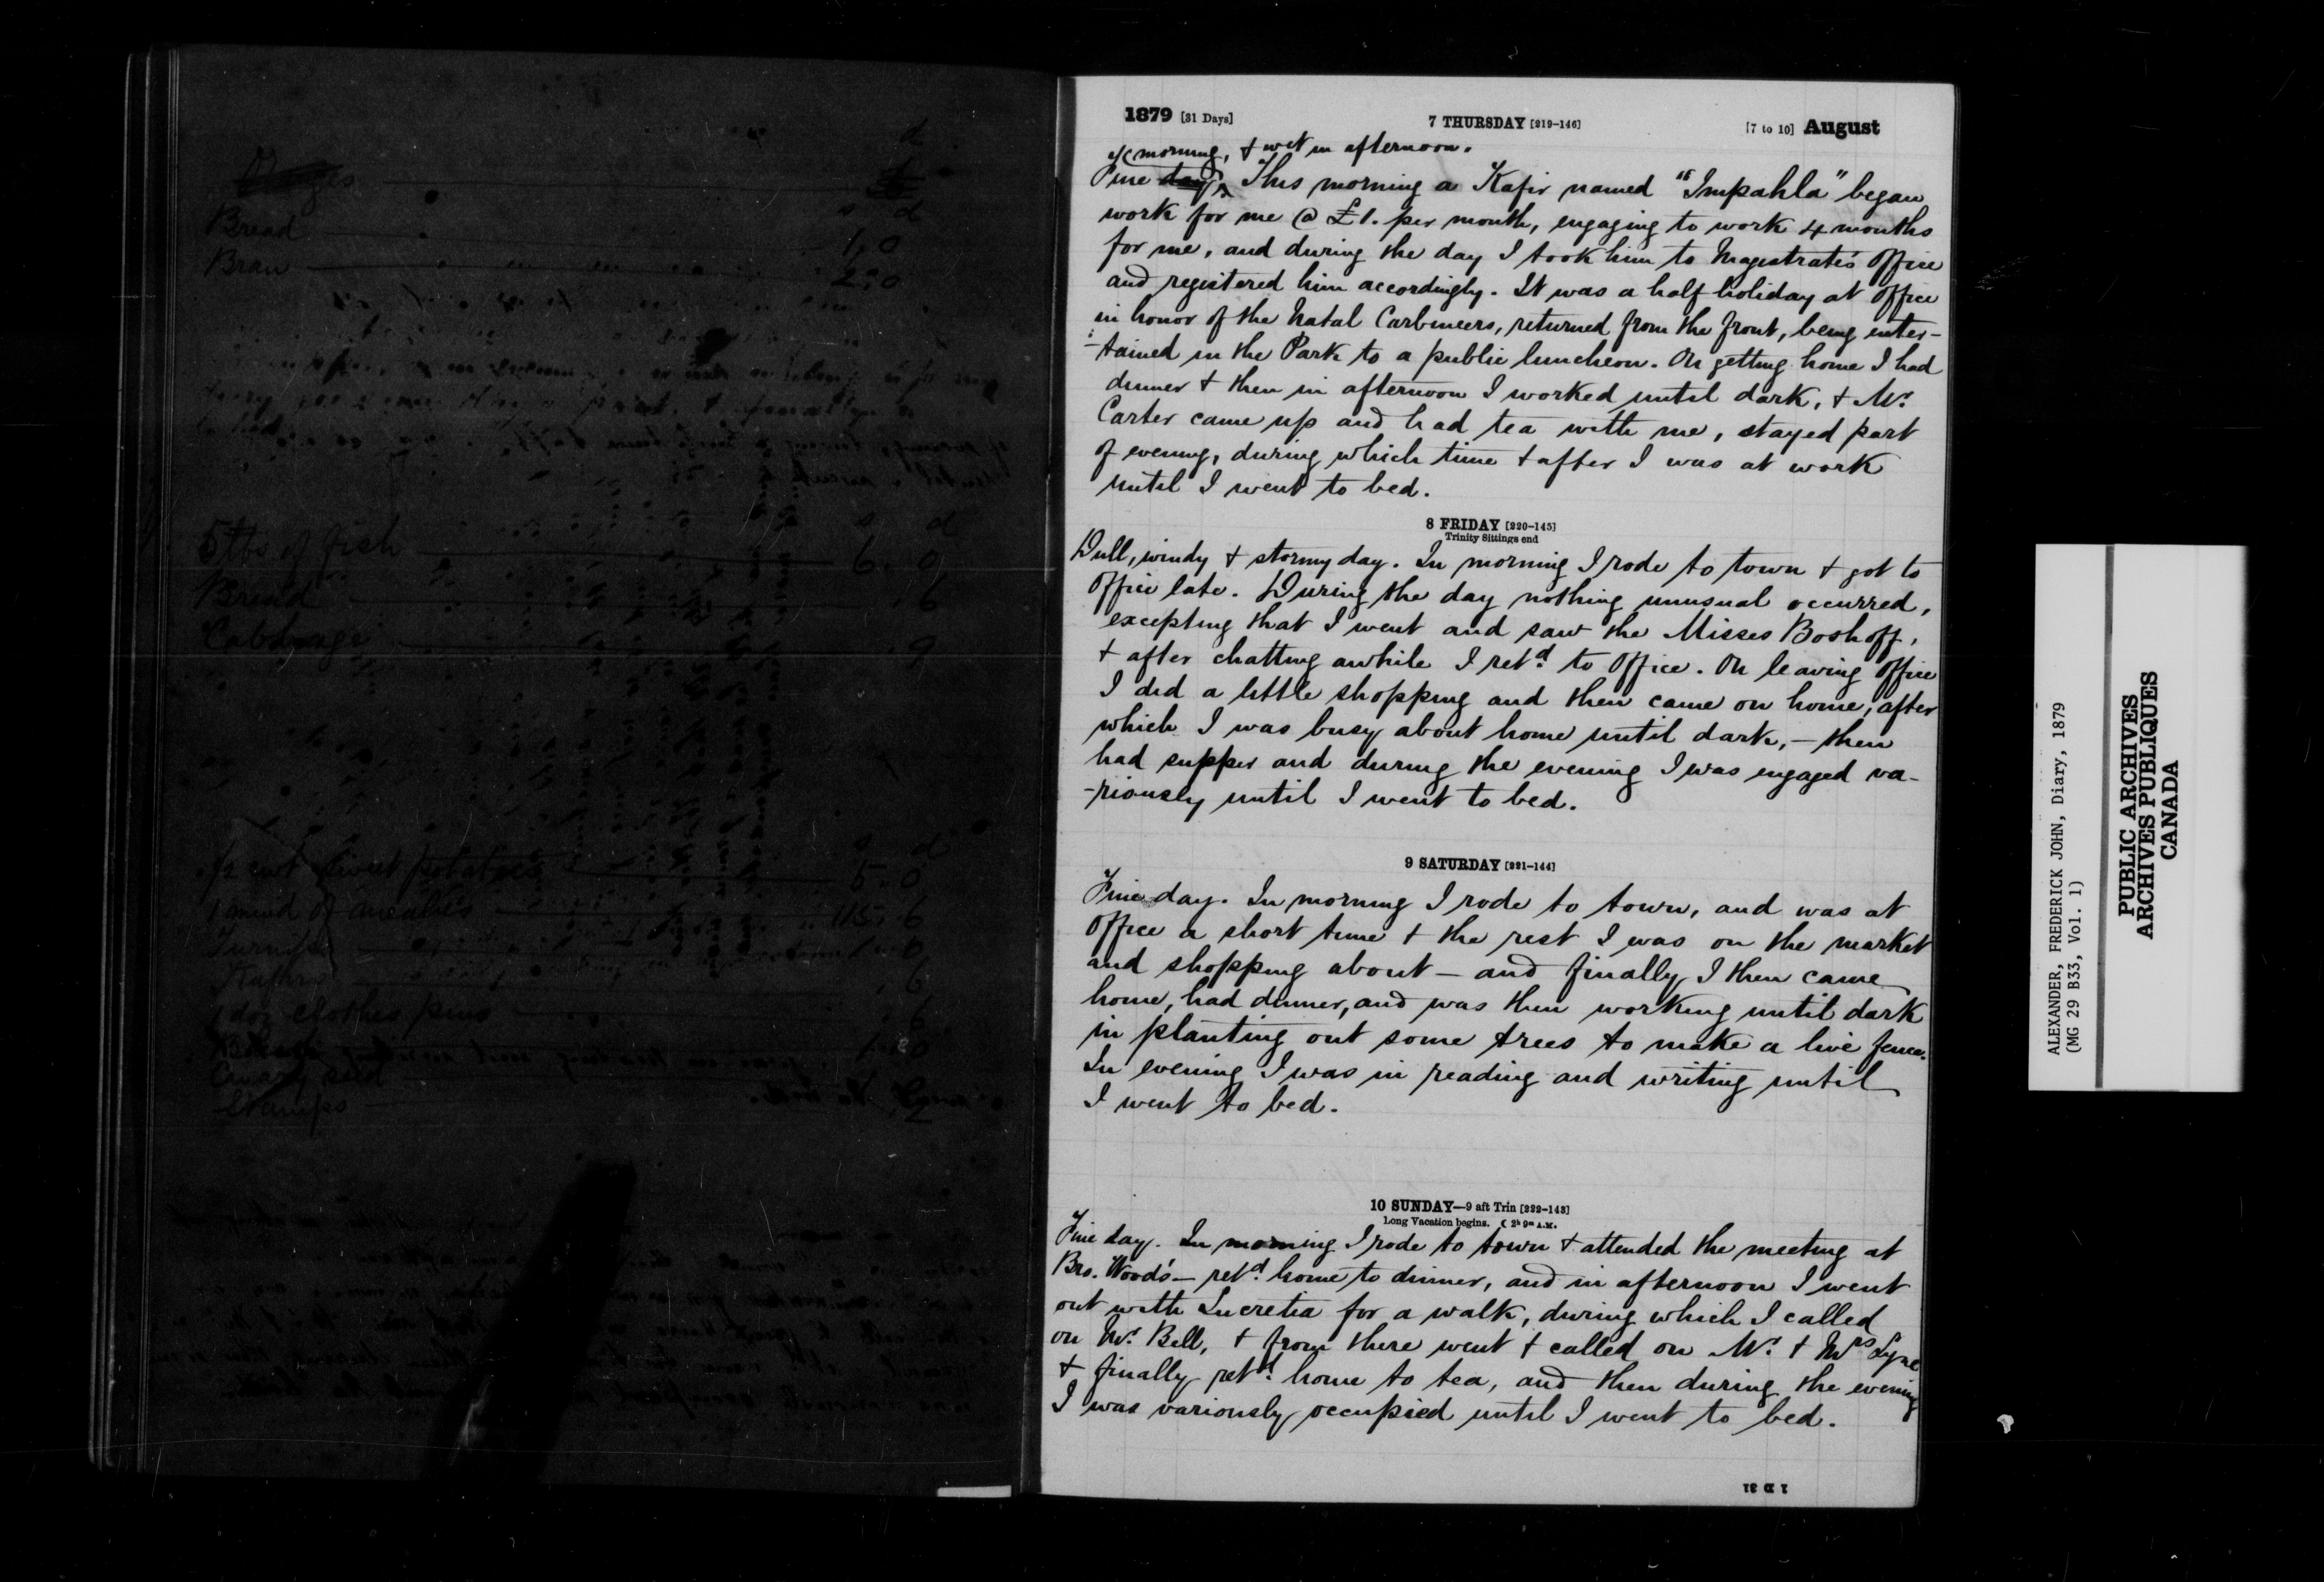 Bread 1,,0
Bran 2,,0
s d
5 lbs of fish 6,,0
Bread 6
Cabbage 9
s d
1/2 cwt sweet potatoes 5,,0
1 muid of mealies
Turnips
1 doz clothes pins 6
Canary seed
Stamps
1879 [31 Days] 7 THURSDAY [219-146] [7 to 10] August
morning, + wet in afternoon.
Fine day. This morning a Kafir named "Impahla" began
work for me @ £1. per month, engaging to work 4 months
for me, and during the day I took him to Magistrate's Office
and registered him accordingly. It was a half holiday at Office
in honor of the Natal Carbineers, returned from the front, being enter-
-tained in the Park to a public luncheon. On getting home I had
dinner + then in afternoon I worked until dark, + Mr.
Carter came up and had tea with me, stayed part
of evening, during which time + after I was at work
until I went to bed.
8 FRIDAY [220-145]
Trinity Sittings end
Dull, windy + stormy day. In morning I rode to town + got to
Office late. During the day nothing unusual occurred,
excepting that I went and saw the Misses Boshoff,
+ after chatting awhile I retd. to Office. On leaving Office
I did a little shopping and then came on home, after
which I was busy about home until dark, — then
had supper and during the evening I was engaged va-
-riously until I went to bed.
9 SATURDAY [221-144]
Fine day. In morning I rode to town, and was at
Office a short time + the rest I was on the market
and shopping about — and finally I then came
home, had dinner, and was then working until dark
in planting out some trees to make a live fence.
In evening I was in reading and writing until
I went to bed.
10 SUNDAY—9 aft Trin [222-143]
Long Vacation begins. ☾ 2h 9m A.M.
Fine day. In morning I rode to town + attended the meeting at
Bro. Wood's — retd. home to dinner, and in afternoon I went
out with Lucretia for a walk, during which I called
on Mr. Bell, + from there went + called on Mr. + Mrs Lyne
+ finally retd. home to tea, and then during the evening
I was variously occupied until I went to bed.
1 D 31
ALEXANDER, FREDERICK JOHN, Diary, 1879
(MG 29 B33, Vol. 1)
PUBLIC ARCHIVES
ARCHIVES PUBLIQUES
CANADA